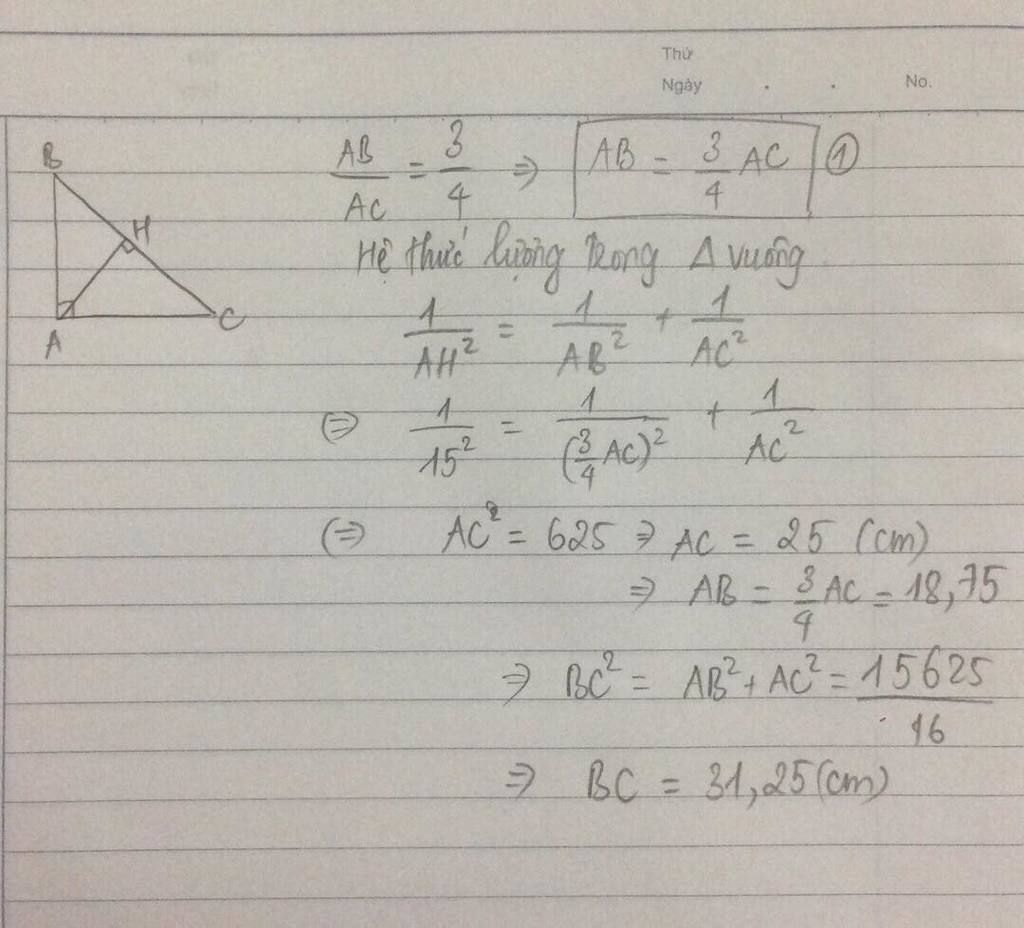 Thứ
Ngày . . No.
B
H
A
C
AB/AC = 3/4 ⇒ AB = 3/4 AC ①
Hệ thức lượng trong Δ vuông
1/AH² = 1/AB² + 1/AC²
⇔ 1/15² = 1/(3/4 AC)² + 1/AC²
⇔ AC² = 625 ⇒ AC = 25 (cm)
⇒ AB = 3/4 AC = 18,75
⇒ BC² = AB² + AC² = 15625/16
⇒ BC = 31,25 (cm)